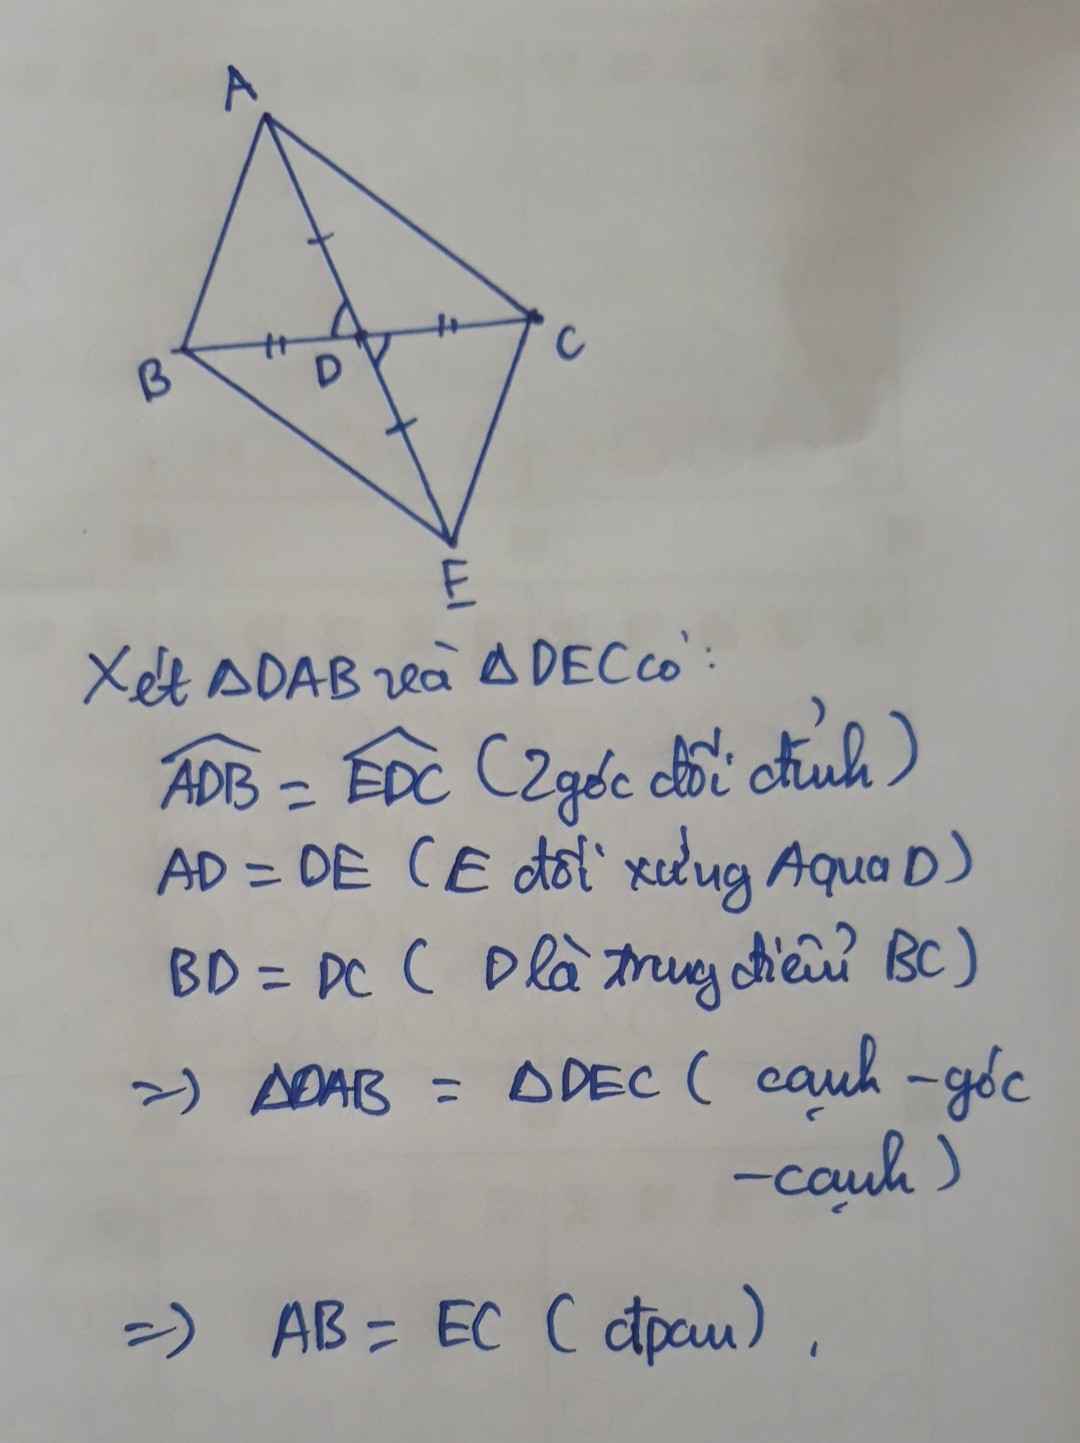 A
B
D
C
E
Xét ΔDAB và ΔDEC có:
ADB = EDC (2 góc đối đỉnh)
AD = DE (E đối xứng A qua D)
BD = DC ( D là trung điểm BC)
=> ΔDAB = ΔDEC ( cạnh - góc
- cạnh)
=> AB = EC ( đpcm).